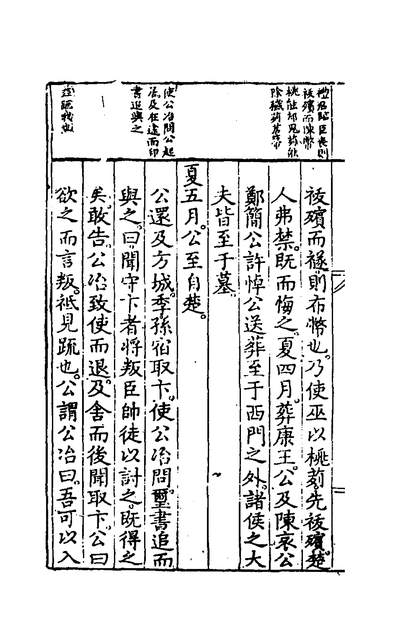 禮君臨臣喪則
袚殯而陳幣
桃能却鬼茢能
除穢茢苕帚
使公冶問公起
居及在途而印
書追與之
益疏我也
袚殯而禭則布幣也。乃使巫以桃茢先袚殯。楚
人弗禁。既而悔之。夏四月。葬康王。公及陳哀公
鄭簡公許悼公送葬至于西門之外。諸侯之大
夫皆至于墓。
夏五月。公至自楚。
公還及方城。季孫宿取卞。使公冶問。璽書追而
與之。曰。聞守卞者將叛。臣帥徒以討之。既得之
矣。敢告。公冶致使而退。及舍而後聞取卞。公曰
欲之而言叛。祗見疏也。公謂公冶曰。吾可以入